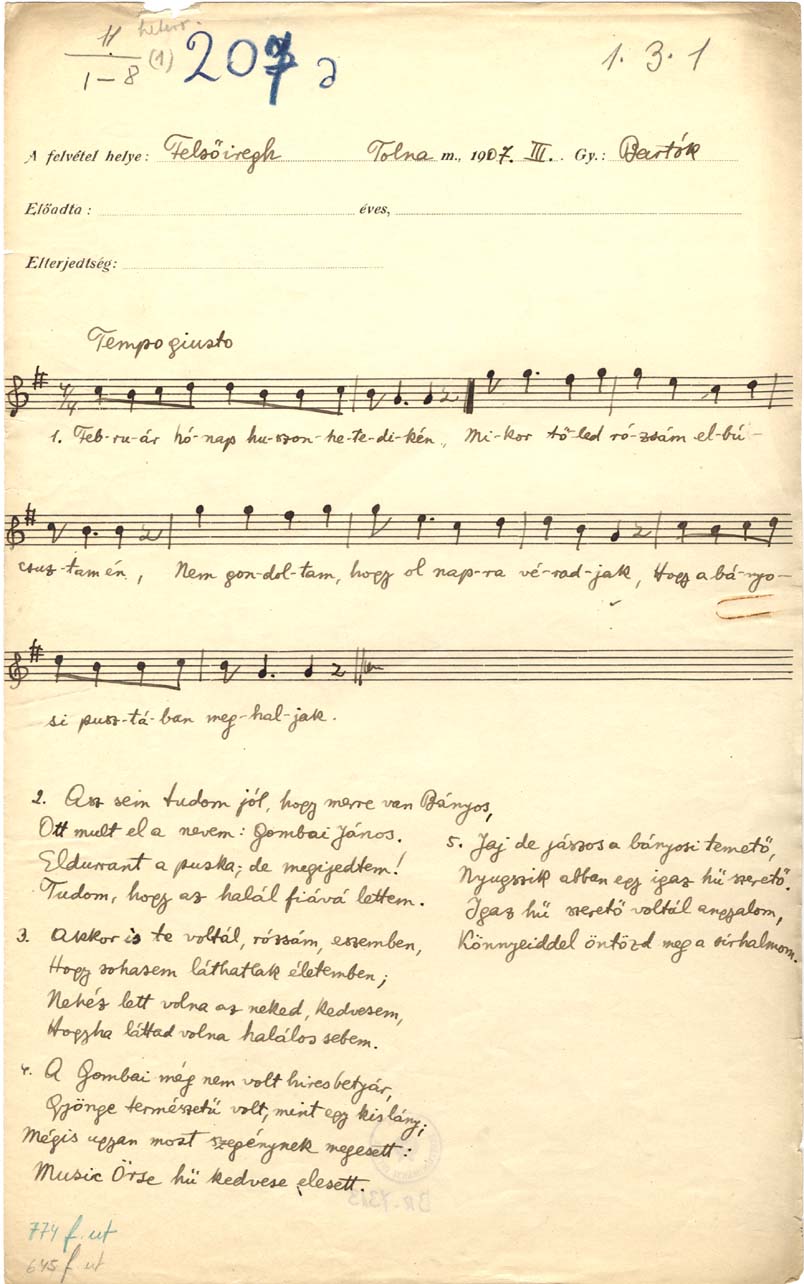 11 heter.
1-8 (1) 207 a 1. 3. 1
A felvétel helye: Felsőiregh Tolna m., 1907. III. Gy.: Bartók
Előadta: éves,
Elterjedtség:
Tempo giusto
4/4
1. Feb-ru-ár hó-nap hu-szon-he-te-di-kén, Mi-kor tő-led ró-zsám el-bú-
csuz-tam én, Nem gon-dol-tam, hogy ol nap-ra vé-rad-jak, Hogy a bá-nyo-
si pusz-tá-ban meg-hal-jak.
2. Asz sein tudom jól, hogy merre van Bányos,
Ott mult el a nevem: Gombai János.
Eldurrant a puska; de megijedtem!
Tudom, hogy az halál fiává lettem.
3. Akkor is te voltál, rózsám, eszemben,
Hogy sohasem láthatlak életemben;
Nehéz lett volna az neked, kedvesem,
Hogyha láttad volna halálos sebem.
4. A Gombai még nem volt hires betyár,
Gyönge természetű volt, mint egy kis lány;
Mégis ugyan most szegénynek megesett:
Music Örse hü kedvese elesett.
5. Jaj de jászos a bányosi temető,
Nyugszik abban egy igaz hü szerető.
Igaz hü szerető voltál angyalom,
Könnyeiddel öntözd meg a sirhalmom.
774 f. ut
645 f. ut